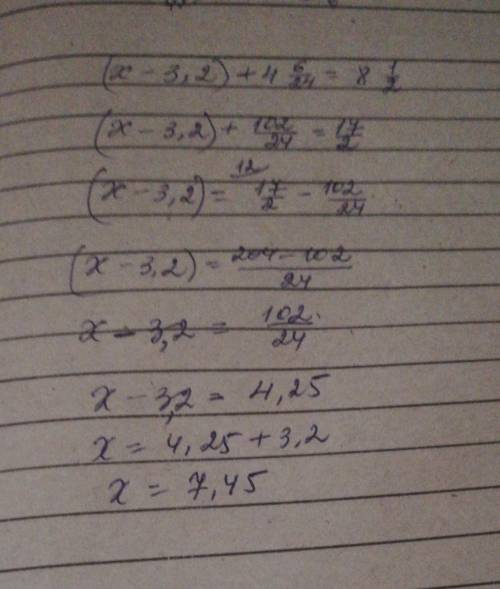 (x - 3,2) + 4 6/24 = 8 1/2
(x - 3,2) + 102/24 = 17/2
12
(x - 3,2) = 17/2 - 102/24
(x - 3,2) = 204 - 102/24
x - 3,2 = 102/24
x - 3,2 = 4,25
x = 4,25 + 3,2
x = 7,45